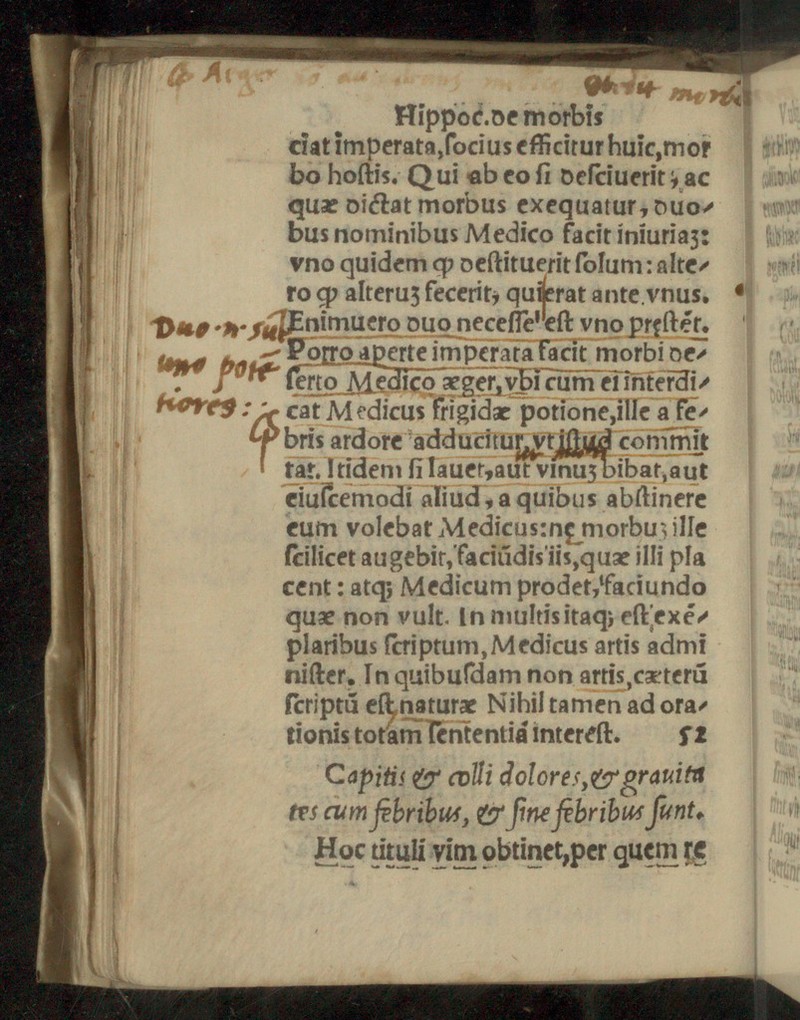 Obitꝰ morbi
Hippoc.de morbis
ciat imperata,ſocius efficitur huic,mor
bo hoſtis. Qui ab eo ſi deſciuerit, ac
quæ dictat morbus exequatur, duo⸗
bus nominibus Medico facit iniuriaꝫ:
vno quidem ꝙ deſtituerit ſolum: alte⸗
ro ꝙ alteruꝫ fecerit, qui erat ante vnus.
Duo Enimuero duo neceſſe eſt vno pręſtét.
Porro aperte imperata facit morbi de⸗
ferto Medico æger, vbi cum ei interdi⸗
cat Medicus frigidæ potione,ille a fe⸗
bris ardore adducitur, vt iſtud commit
tat. Itidem ſi lauet,aut vinuꝫ bibat,aut
eiuſcemodi aliud, a quibus abſtinere
eum volebat Medicus:nę morbuꝫ ille
ſcilicet augebit, faciūdis iis,quæ illi pla
cent: atqꝫ Medicum prodet, faciundo
quæ non vult. In multis itaqꝫ eſt exé⸗
plaribus ſcriptum, Medicus artis admi
niſter. In quibuſdam non artis,cæterū
ſcriptū eſt,naturæ Nihil tamen ad ora⸗
tionis totam ſententiá intereſt. 52
Capitis & colli dolores,& grauita
tes cum febribus, & ſine febribus ſunt.
Hoc tituli vim obtinet,per quem re